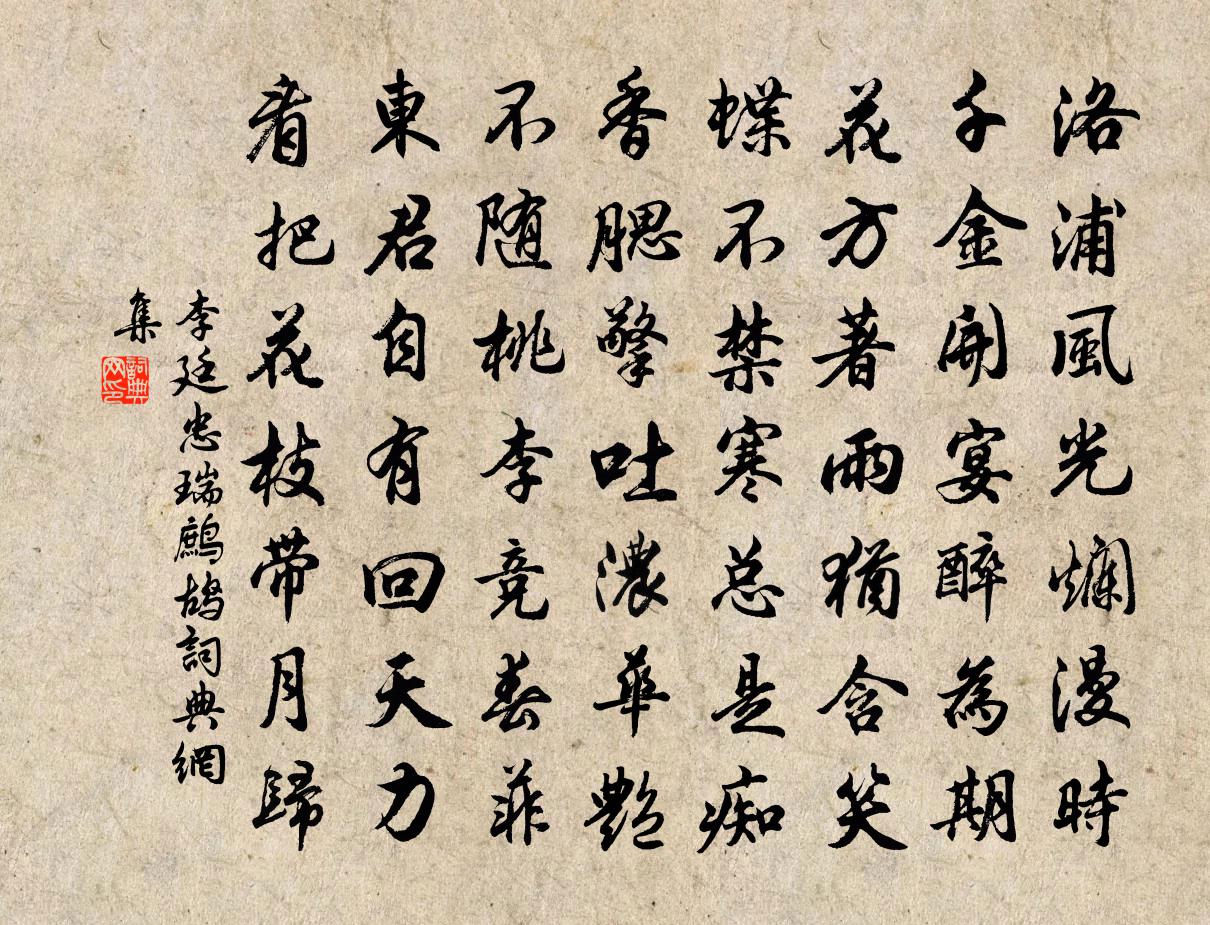 洛浦風光爛漫時
千金開宴醉為期
花方著雨猶含笑
蝶不禁寒总是痴
香腮擎吐濃華艷
不随桃李竞春菲
東君自有回天力
看把花枝帶月歸
李廷忠瑞鷓鴣詞典網
集
詞典
网印